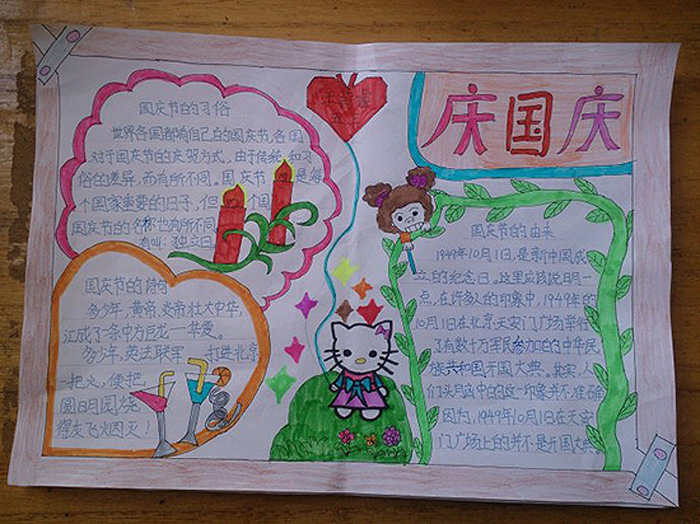 庆国庆
国庆节的习俗
世界各国都有自己的国庆节,各国
对于国庆节的庆贺方式,由于传统和习
俗的差异,而有所不同。国庆节是每
个国家重要的日子,但个国
国庆节的名称也有所不同
有叫:独立日
国庆节的诗句
多少年,黄帝、炎帝壮大中华,
汇成了一条中方巨龙一华夏。
多少年,英法联军打进北京
一把火,便把
圆明园烧
得灰飞烟灭!
国庆节的由来
1949年10月1日,是新中国成
立的纪念日。这里应该说明一
点,在许多人的印象中,1949年的
10月1日在北京天安门广场举行
了有数十万军民参加的中华民
族共和国开国大典。其实,人
们头脑中的这一印象并不准确
因为,1949年10月1日在天安
门广场上的并不是开国大典。